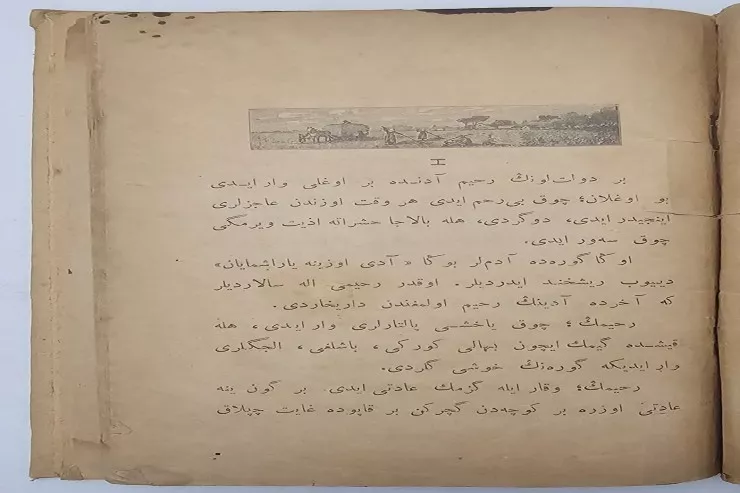 I
بر دولت‌لونڭ رحیم آدنده بر اوغلی وار ایدی
بو اوغلان؛ چوق بی‌رحم ایدی هر وقت اوزندن عاجزلری
اینجیدر ایدی، دوگردی، هله بالاجا حشراته اذیت ویرمگی
چوق سه‌ور ایدی.
اوڭا گوره‌ده آدم‌لر بوڭا « آدی اوزینه یاراشمایان»
دییوب ریشخند ایدردیلر. اوقدر رحیمی اله سالاردیلر
که آخرده آدینڭ رحیم اولمغندن داریخاردی.
رحیمڭ؛ چوق یاخشی پالتارلری وار ایدی، هله
قیشده گیمك ایچون بهالی کورکی، باشلغی، الجگلری
وار ایدیکه گوره‌نڭ خوشی گلردی.
رحیمڭ؛ وقار ایله گزمك عادتی ایدی. بر گون ینه
عادتی اوزره بر کوچه‌دن گچرکن بر قاپوده غایت چپلاق